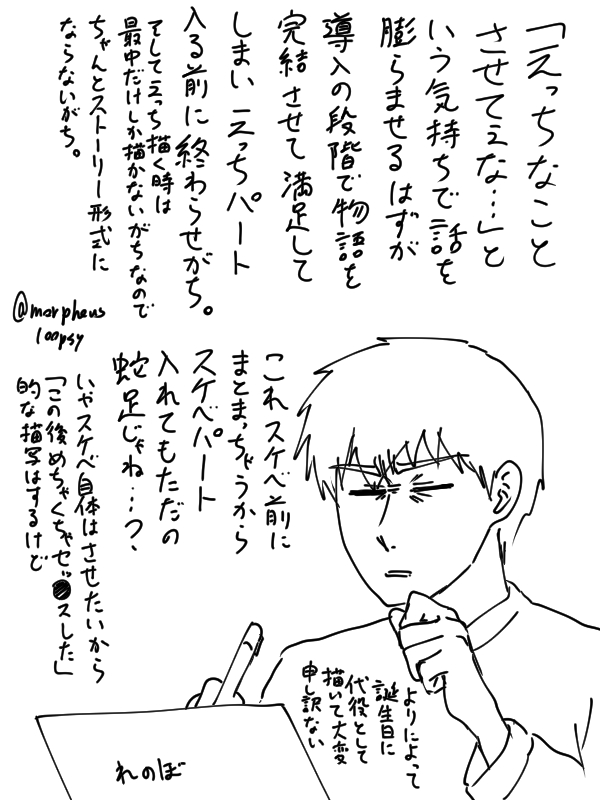 「えっちなこと
させてぇな…」と
いう気持ちで話を
膨らませるはずが
導入の段階で物語を
完結させて満足して
しまいえっちパート
入る前に終わらせがち。
そしてえっち描く時は
最中だけしか描かないがちなので
ちゃんとストーリー形式に
ならないがち。
@morpheus
loopsy
これスケベ前に
まとまっちゃうから
スケベパート
入れてもただの
蛇足じゃね…?、
いやスケベ自体はさせたいから
「この後めちゃくちゃセッ●スした」
的な描写はするけど
よりによって
誕生日に
代役として
描いて大変
申し訳ない
れのぼ